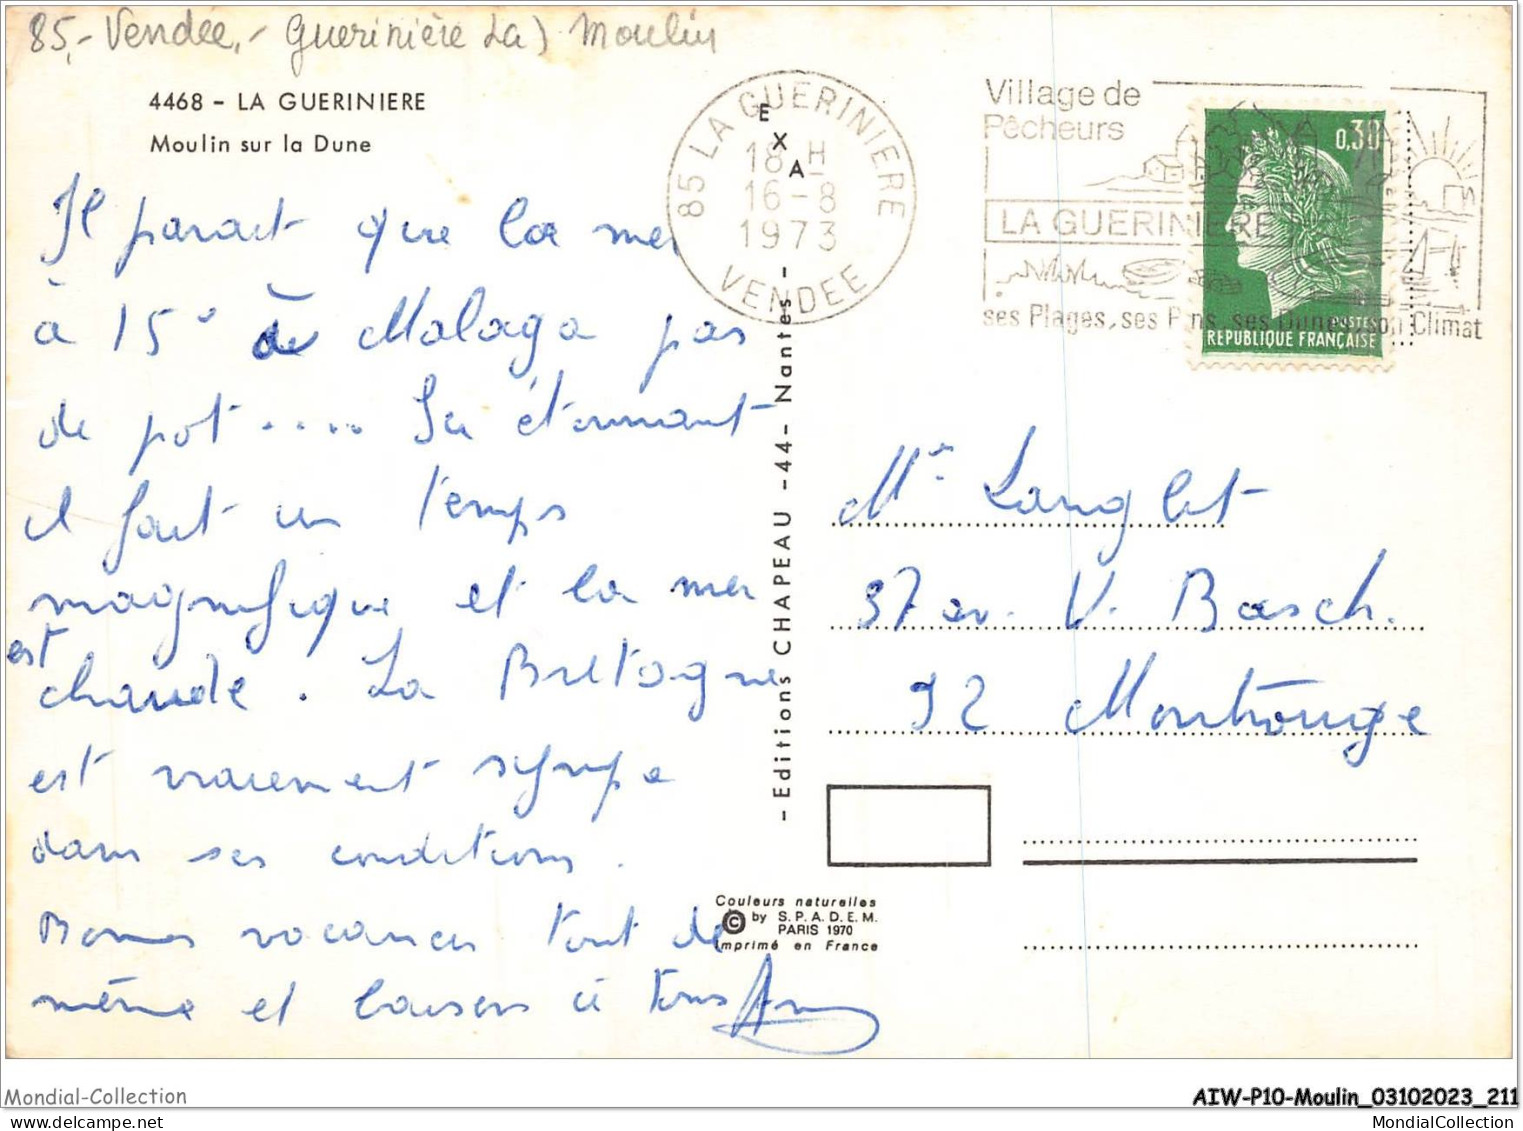 85,- Vendée,- Guerinière La) Moulin
4468 - LA GUERINIERE
Moulin sur la Dune
Il parait que la mer
à 15° à Malaga pas
de pot .... Ici étonnant
il fait un temps
magnifique et la mer
est
chaude. La Bretagne
est vraiment sympa
dans ses conditions.
Bonnes vacances tout de
même et baisers à tous
EXA
85 LA GUERINIERE
18 H
16-8
1973
VENDEE
Village de
Pêcheurs
LA GUERINIERE
ses Plages, ses Pins, ses Dunes, son Climat
0,30
POSTES
REPUBLIQUE FRANÇAISE
- Editions CHAPEAU -44- Nantes -
Mr Langlet
37 av. V. Basch.
92 Montrouge
Couleurs naturelles
© by S.P.A.D.E.M.
PARIS 1970
Imprimé en France
Mondial-Collection
AIW-P10-Moulin_03102023_211
MondialCollection